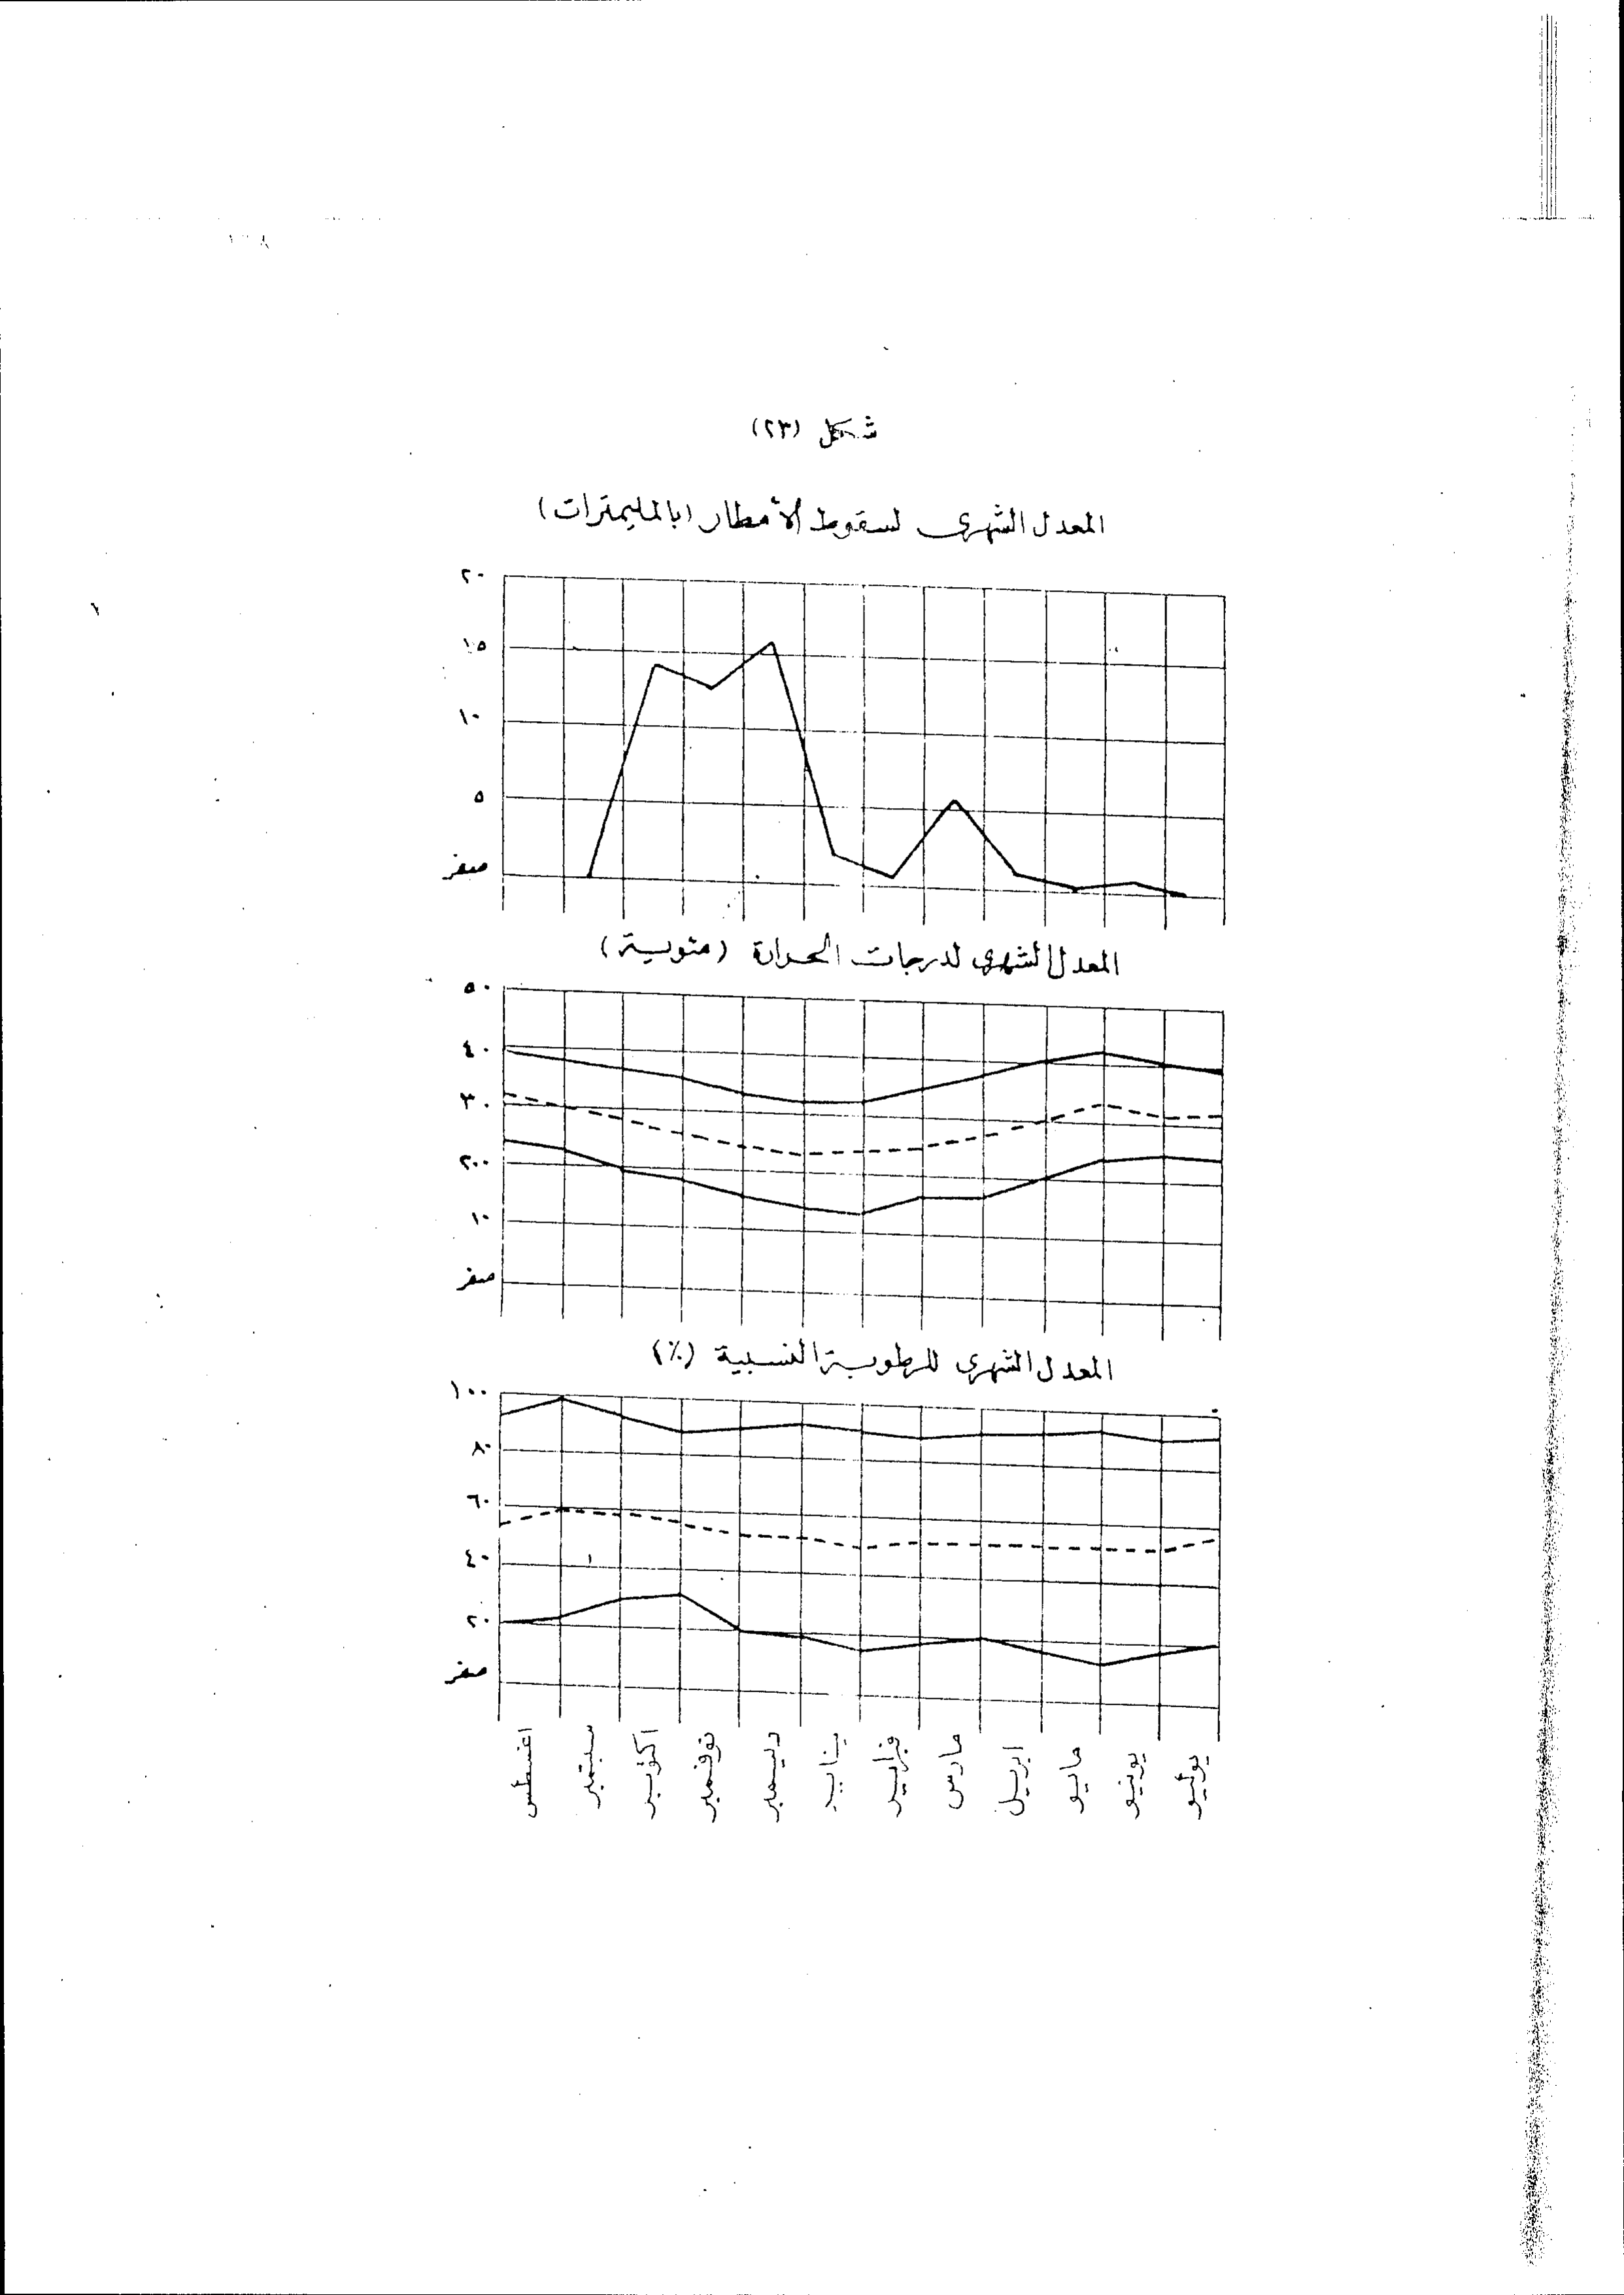 شكل (٢٣)
المعدل الشهرى لسقوط الأمطار (بالمليمترات)
٢٠
١٥
١٠
٥
صفر
المعدل الشهرى لدرجات الحرارة (مئوية)
٥٠
٤٠
٣٠
٢٠٠
١٠
صفر
المعدل الشهرى للرطوبة النسبية (٪)
١٠٠
٨٠
٦٠
٤٠
٢٠
صفر
اغسطس سبتمبر اكتوبر نوفمبر ديسمبر يناير فبراير مارس ابريل مايو يونيو يوليو